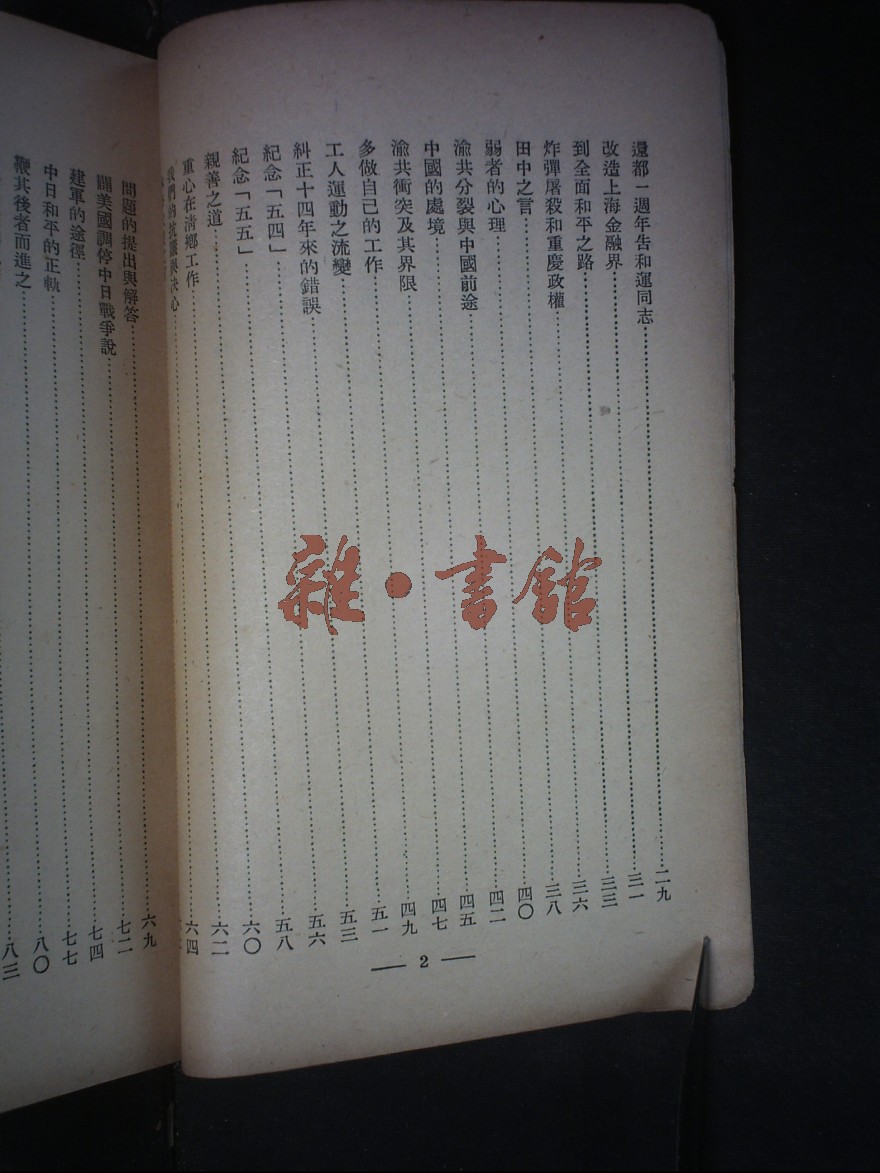 還都一週年告和運同志……二九
改造上海金融界……三一
到全面和平之路……三三
炸彈屠殺和重慶政權……三六
田中之言……三八
弱者的心理……四〇
渝共分裂與中國前途……四二
中國的處境……四五
渝共衝突及其界限……四七
多做自己的工作……四九
工人運動之流變……五一
糾正十四年來的錯誤……五三
紀念「五四」……五六
紀念「五五」……五八
親善之道……六〇
重心在清鄉工作……六二
我們的抗議與決心……六四
— 2 —
問題的提出與解答……六九
闢美國調停中日戰爭說……七二
建軍的途徑……七四
中日和平的正軌……七七
鞭其後者而進之……八〇
八三
雜·書館